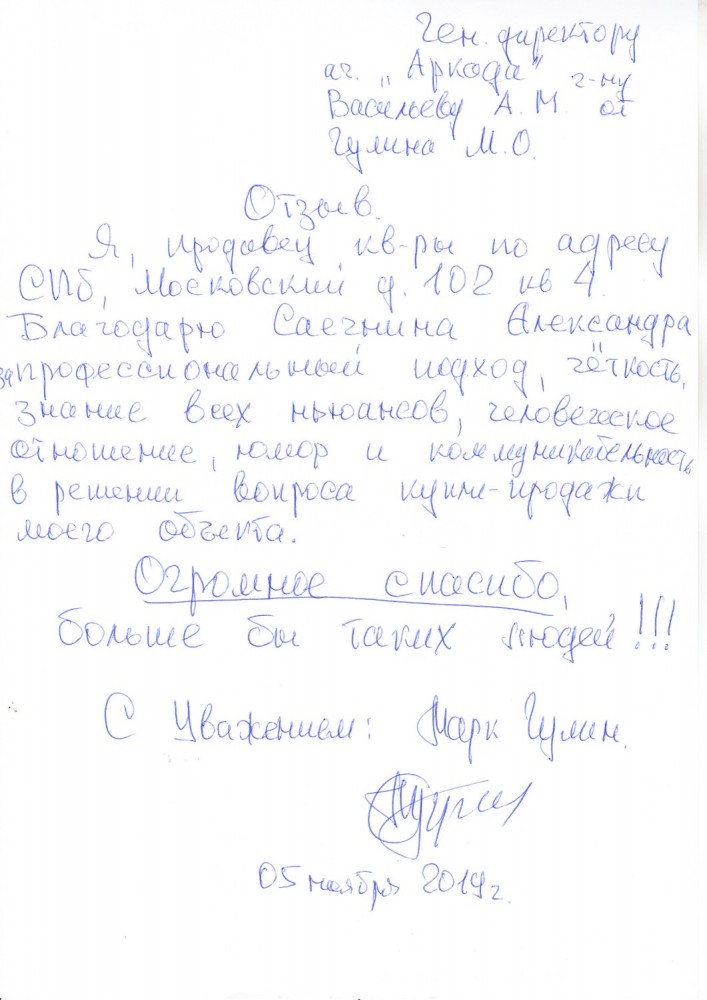 Ген. директору
аг. „Аркада" г-ну
Васильеву А. М. от
Гулина М. О.
Отзыв.
Я, продавец кв-ры по адресу
СПб, Московский д. 102 кв 4.
Благодарю Саечнина Александра
за профессиональный подход, чёткость,
знание всех ньюансов, человеческое
отношение, юмор и коммуникабельность
в решении вопроса купли-продажи
моего объекта.
Огромное спасибо,
больше бы таких людей!!!
С Уважением: Марк Гулин.
05 ноября 2019 г.